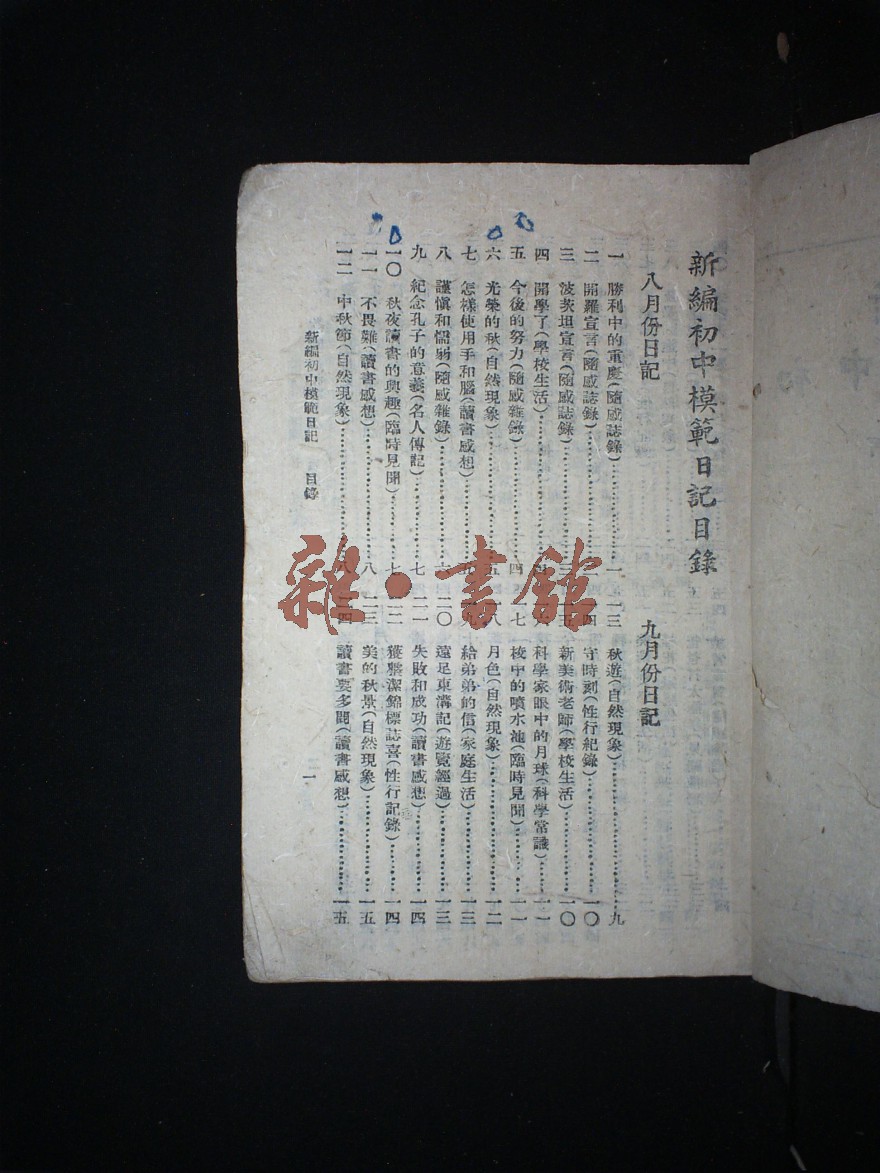 新編初中模範日記目錄
八月份日記
一 勝利中的重慶(隨感誌錄)…………一
二 開羅宣言(隨感誌錄)…………二
三 波茨坦宣言(隨感誌錄)…………三
四 開學了(學校生活)…………
五 今後的努力(隨感雜錄)…………四
六 光榮的秋(自然現象)…………五
七 怎樣使用手和腦(讀書感想)…………
八 謹愼和懦弱(隨感雜錄)…………六
九 紀念孔子的意義(名人傳記)…………七
一〇 秋夜讀書的興趣(臨時見聞)…………七
一一 不畏難(讀書感想)…………八
一二 中秋節(自然現象)…………八
九月份日記
一三 秋遊(自然現象)…………九
一四 守時刻(性行紀錄)…………一〇
一五 新美術老師(學校生活)…………一〇
科學家眼中的月球(科學常識)…………一一
一七 校中的噴水池(臨時見聞)…………一一
一八 月色(自然現象)…………一二
給弟弟的信(家庭生活)…………一三
二〇 遠足東溝記(遊覽經過)…………一三
二一 失敗和成功(讀書感想)…………一四
二二 獲整潔錦標誌喜(性行記錄)…………一四
二三 美的秋景(自然現象)…………一五
二四 讀書要多問(讀書感想)…………一五
新編初中模範日記 目錄
一
雜·書館